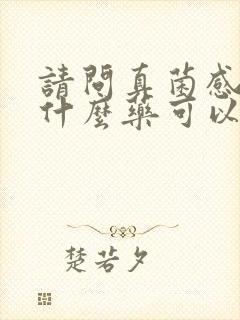 請問真菌感
什麼藥可以
楚若夕